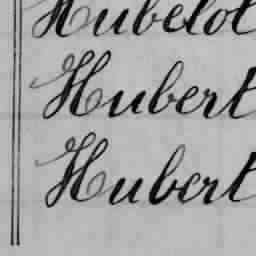 Hubelot
Hubert
Hubert